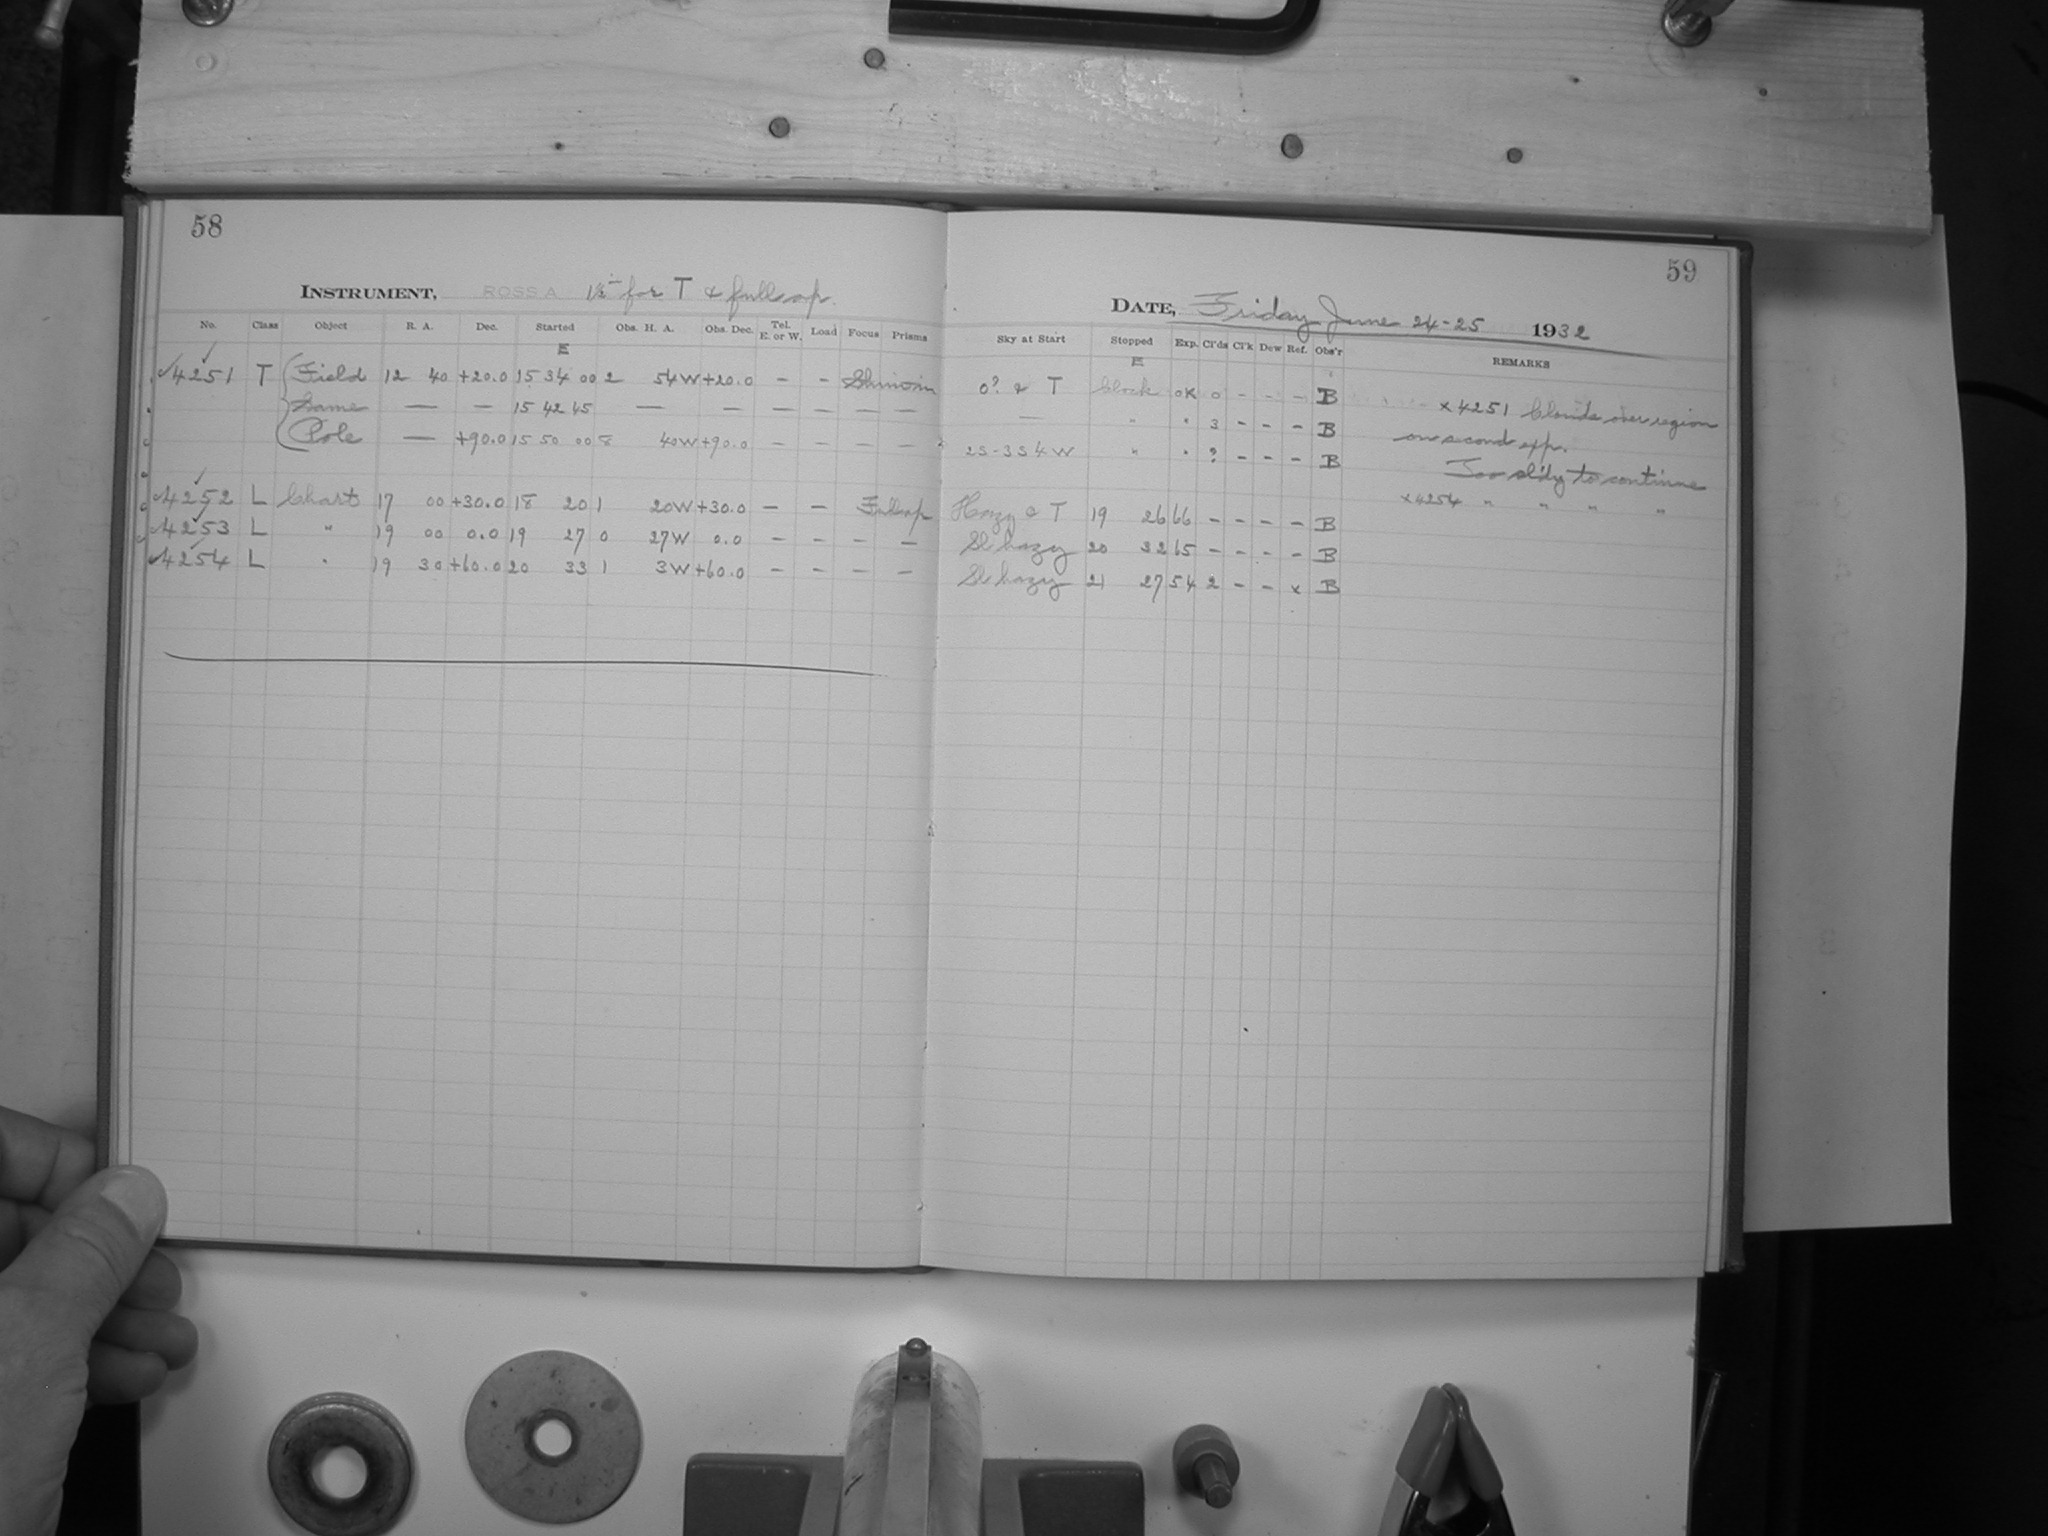 58
INSTRUMENT, ROSS A 1½ in for T & full ap.
No. Class Object R. A. Dec. Started Obs. H. A. Obs. Dec. Tel. E. or W. Load Focus Prisms
E
✓4251 T Field 12 40 +20.0 15 34 00 2 54W +20.0 - -
Same — — 15 42 45 — — — — — —
Pole — +90.0 15 50 00 8 40W +90.0 — — — —
✓4252 L Chart 17 00 +30.0 18 20 1 20W +30.0 — — Full ap
✓4253 L " 19 00 0.0 19 27 0 27W 0.0 — — — —
✓4254 L " 19 30 +60.0 20 33 1 3W +60.0 — — — —
59
DATE, Friday June 24-25 1932
Sky at Start Stopped Exp. Cl'ds Cl'k Dew Ref. Obs'r REMARKS
E
0? & T Clock OK 0 - - - B x4251 Clouds over region
— " " 3 - - - B on second exp.
25-354W " " ? - - - B Too cl'dy to continue
x4254 " " " "
Hazy & T 19 26 66 - - - - B
Sl hazy 20 32 65 - - - - B
Sl hazy 21 27 54 2 - - x B